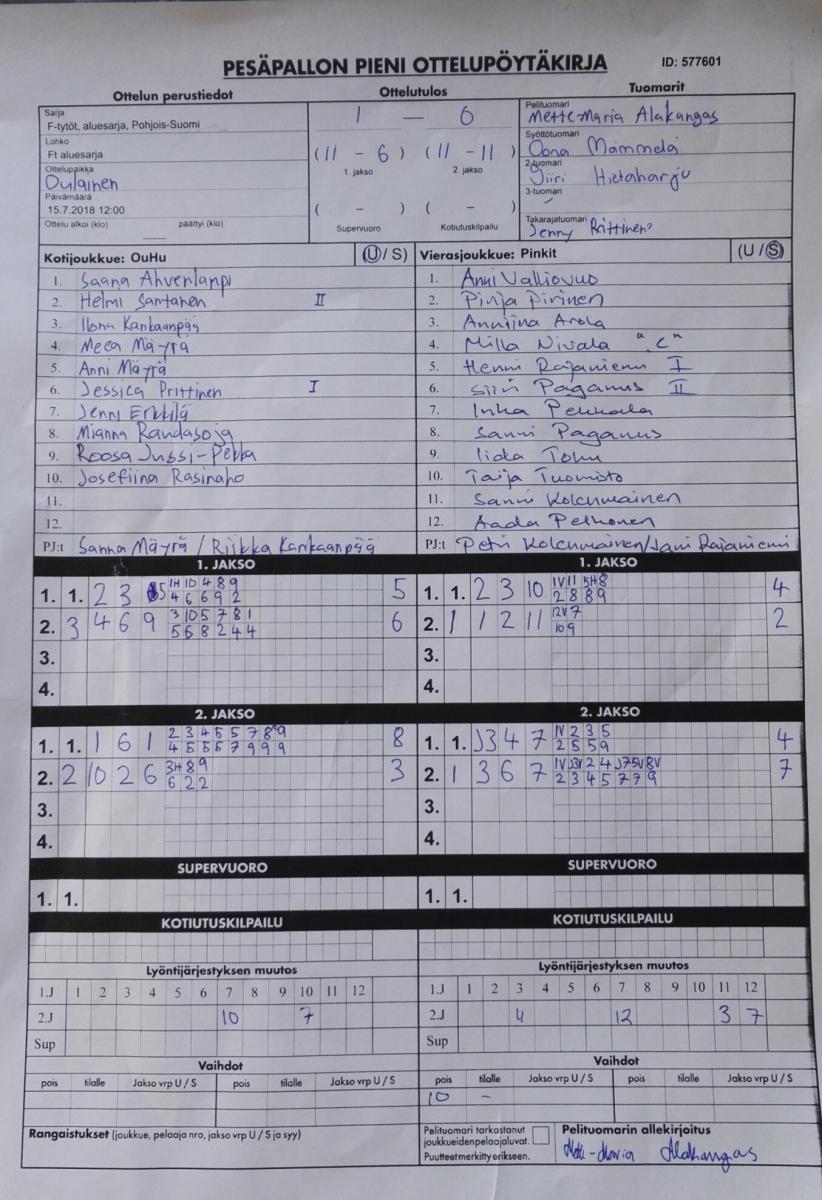 PESÄPALLON PIENI OTTELUPÖYTÄKIRJA ID: 577601
Ottelun perustiedot Ottelutulos Tuomarit
Sarja
F-tytöt, aluesarja, Pohjois-Suomi
1 — 6
Pelituomari
Mette-Maria Alakangas
Lohko
Ft aluesarja
(11 - 6) (11 - 11)
1. jakso 2. jakso
Syöttötuomari
Oona Mämmelä
Ottelupaikka
Oulainen
2-tuomari
Jiiri Hietaharju
Päivämäärä
15.7.2018 12:00
( - ) ( - )
3-tuomari
-
Ottelu alkoi (klo) päättyi (klo)
Supervuoro Kotiutuskilpailu
Takarajatuomari
Jenny Prittinen
Kotijoukkue: OuHu (U / S) Vierasjoukkue: Pinkit (U / S)
1. Saana Ahvenlampi 1. Anni Valliovuo
2. Helmi Santanen II 2. Pinja Pirinen
3. Ilona Kankaanpää 3. Anniina Arola
4. Meea Mäyrä 4. Milla Nivala "C"
5. Anni Mäyrä 5. Henni Rajaniemi I
6. Jessica Prittinen I 6. Siiri Paganus II
7. Jenny Erkkilä 7. Inka Pekkala
8. Mianna Randasoja 8. Sanni Paganus
9. Roosa Jussi-Pekka 9. Iida Tohu
10. Josefiina Rasinaho 10. Taija Tuomisto
11. 11. Sanni Kolehmainen
12. 12. Aada Pelkonen
PJ:t Sanna Mäyrä / Riikka Kankaanpää PJ:t Petri Kolehmainen/Jani Rajaniemi
1. JAKSO 1. JAKSO
1. 1. 2 3 5 1H 10 4 8 9 5 1. 1. 2 3 10 1V 11 5H 8 4
4 6 6 9 2 2 8 8 9
2. 3 4 6 9 3 10 5 7 8 1 6 2. 1 1 2 11 12V 7 2
5 6 8 2 4 4 10 9
3. 3.
4. 4.
2. JAKSO 2. JAKSO
1. 1. 1 6 1 2 3 4 5 5 7 8 9 8 1. 1. J3 4 7 1V 2 3 5 4
4 5 5 6 7 9 9 9 2 5 5 9
2. 2 10 2 6 3H 8 9 3 2. 1 3 6 7 1V J3V 2 4 J7 5V 8V 7
6 2 2 2 3 4 5 7 7 9
3. 3.
4. 4.
SUPERVUORO SUPERVUORO
1. 1. 1. 1.
KOTIUTUSKILPAILU KOTIUTUSKILPAILU
Lyöntijärjestyksen muutos Lyöntijärjestyksen muutos
1.J 1 2 3 4 5 6 7 8 9 10 11 12 1.J 1 2 3 4 5 6 7 8 9 10 11 12
2.J 10 7 2.J 4 12 3 7
Sup Sup
Vaihdot Vaihdot
pois tilalle Jakso vrp U / S pois tilalle Jakso vrp U / S pois tilalle Jakso vrp U / S pois tilalle Jakso vrp U / S
10 -
Rangaistukset (joukkue, pelaaja nro, jakso vrp U / S ja syy)
Pelituomari tarkastanut
joukkueidenpelaajaluvat.
Puutteet merkitty erikseen.
Pelituomarin allekirjoitus
Mette-Maria Alakangas